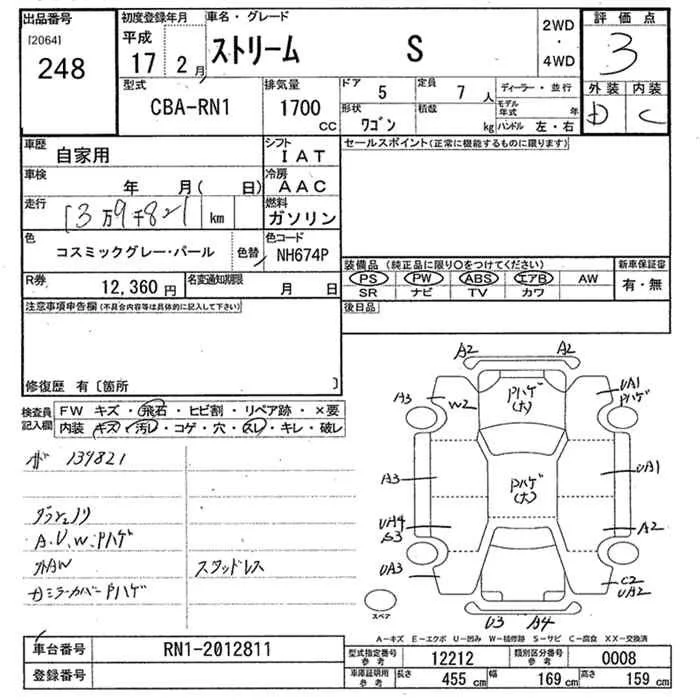 出品番号 初度登録年月 車名・グレード 2WD・4WD 評価点
[2064] 平成 3
248 17 2月 ストリーム S 外装 内装
型式 排気量 ドア 定員 ディーラー・並行 D C
CBA-RN1 1700cc 5 7人 モデル年式 年
形状 ワゴン 積載 kg ハンドル 左・右
車歴 自家用 シフト IAT セールスポイント(正常に機能するものに限ります)
車検 年 月(日) 冷房 AAC
走行 13万9千821km 燃料 ガソリン
色 コスミックグレー・パール 色替 色コード NH674P
装備品(純正品に限り○をつけてください) 新車保証書
R券 12,360円 名変通知期限 月 日 PS PW ABS エアB AW 有・無
SR ナビ TV カワ
注意事項申告欄(不具合内容等は具体的に記入して下さい) 後日品
修復歴 有〔箇所 〕
検査員記入欄 FW キズ・飛石・ヒビ割・リペア跡・×要
内装 キズ・汚レ・コゲ・穴・スレ・キレ・破レ
139821
A.U.W.Pハゲ
外AW スタッドレス
ミラーカバーPハゲ
A2 A2
A3 W2 Pハゲ(大) UA1 Pハゲ
A3 Pハゲ(大) UA1
UA4 S3 A2
UA3 C2 UA2
U3 A4
スペア
A-キズ E-エクボ U-凹み W-補修跡 S-サビ C-腐食 XX-交換済
車台番号 RN1-2012811 型式指定番号参考 12212 類別区分番号参考 0008
登録番号 車庫証明用参考 長さ 455cm 幅 169cm 高さ 159cm